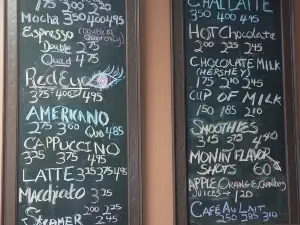 Mocha 350 400 495
Espresso
Double 275
Quad 475
Red Eye
375 400 495
AMERICANO
275 300 Quad 485
CAPPUCCINO
325 375 495
LATTE 325 375 495
Macchiato 325
STEAMER 245
CHAI LATTE
350 400 495
HOT Chocolate
200 225 245
CHOCOLATE MILK
(HERSHEY)
175 210 245
CUP OF MILK
150 185 210
SMOOTHIES
315 375 440
MONIN FLAVOR
SHOTS 60
APPLE ORANGE, Cranberry
JUICES → 120
CAFÉ AU LAIT
250 285 310